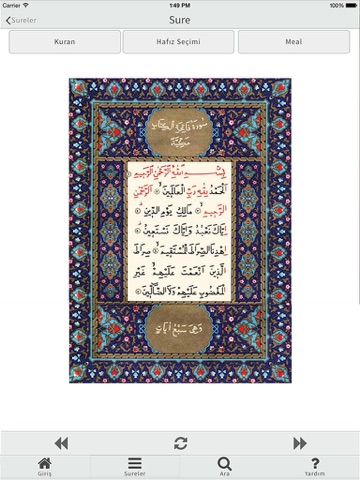 Carrier 1:49 PM 100%
Sureler Sure
Kuran Hafız Seçimi Meal
سورة فاتحة الكتاب
مدنية
بِسْمِ اللّٰهِ الرَّحْمٰنِ الرَّحِيمِ
اَلْحَمْدُ لِلّٰهِ رَبِّ الْعَالَمِينَ الرَّحْمٰنِ
الرَّحِيمِ مَالِكِ يَوْمِ الدِّينِ
اِيَّاكَ نَعْبُدُ وَاِيَّاكَ نَسْتَعِينُ
اِهْدِنَا الصِّرَاطَ الْمُسْتَقِيمَ صِرَاطَ
الَّذِينَ اَنْعَمْتَ عَلَيْهِمْ غَيْرِ
الْمَغْضُوبِ عَلَيْهِمْ وَلَا الضَّالِّينَ
وَهِىَ سَبْعُ اٰيَاتٍ
Giriş Sureler Ara Yardım